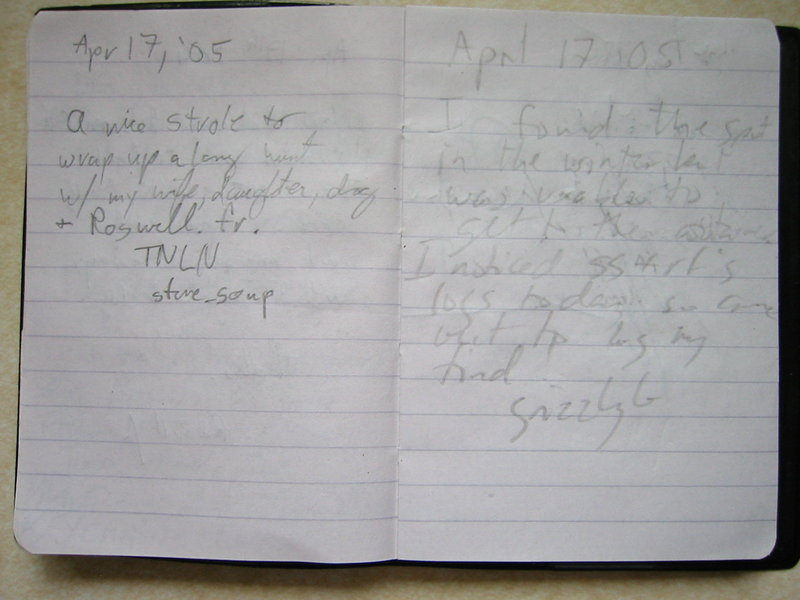 Apr 17, '05
a nice strole to
wrap up a long hunt
w/ my wife, daughter, dog
+ Roswell. fr.
TNLN
steve_soup
April 17 '05
I found the spot
in the winter but
was unable to
get to the
I noticed 's
logs today so came
out to log my
find
grizzlyb